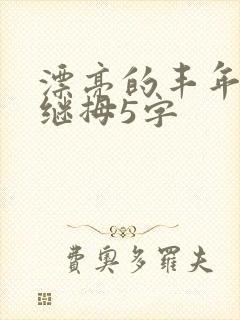 漂亮的丰年
继拇5字
费奥多罗夫